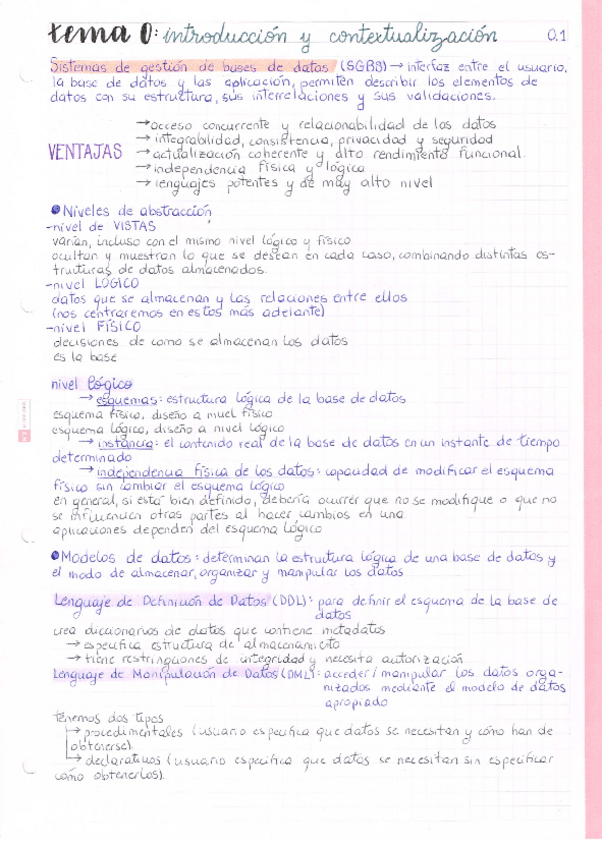 tema 0: introducción y contextualización 0.1
Sistemas de gestión de bases de datos (SGBB) → interfaz entre el usuario,
la base de datos y las aplicación, permiten describir los elementos de
datos con su estructura, sus interrelaciones y sus validaciones.
→ acceso concurrente y relacionabilidad de los datos
→ integrabilidad, consistencia, privacidad y seguridad
VENTAJAS → actualización coherente y alto rendimiento funcional.
→ independencia física y lógica
→ lenguajes potentes y de muy alto nivel
Niveles de abstracción
-nivel de VISTAS
varían, incluso con el mismo nivel lógico y físico
ocultan y muestran lo que se desean en cada caso, combinando distintas es-
tructuras de datos almacenados.
-nivel LÓGICO
datos que se almacenan y las relaciones entre ellos
(nos centraremos en estos más adelante)
-nivel FÍSICO
decisiones de como se almacenan los datos
es la base
nivel lógico
→ esquemas: estructura lógica de la base de datos
esquema físico, diseño a nivel físico
esquema lógico, diseño a nivel lógico
→ instancia: el contenido real de la base de datos en un instante de tiempo
determinado
→ independencia física de los datos: capacidad de modificar el esquema
físico sin cambiar el esquema lógico
en general, si está bien definido, debería ocurrir que no se modifique o que no
se influencien otras partes al hacer cambios en una
aplicaciones dependen del esquema lógico
Modelos de datos: determinan la estructura lógica de una base de datos y
el modo de almacenar, organizar y manipular los datos
Lenguaje de Definición de Datos (DDL): para definir el esquema de la base de
datos
crea diccionarios de datos que contiene metadatos
→ especifica estructura de almacenamiento
→ tiene restricciones de integridad y necesita autorización
Lenguaje de Manipulación de Datos (DML): acceder/manipular los datos orga-
nizados mediante el modelo de datos
apropiado
tenemos dos tipos
→ procedimentales (usuario especifica que datos se necesitan y cómo han de
obtenerse)
→ declarativos (usuario especifica que datos se necesitan sin especificar
cómo obtenerlos).